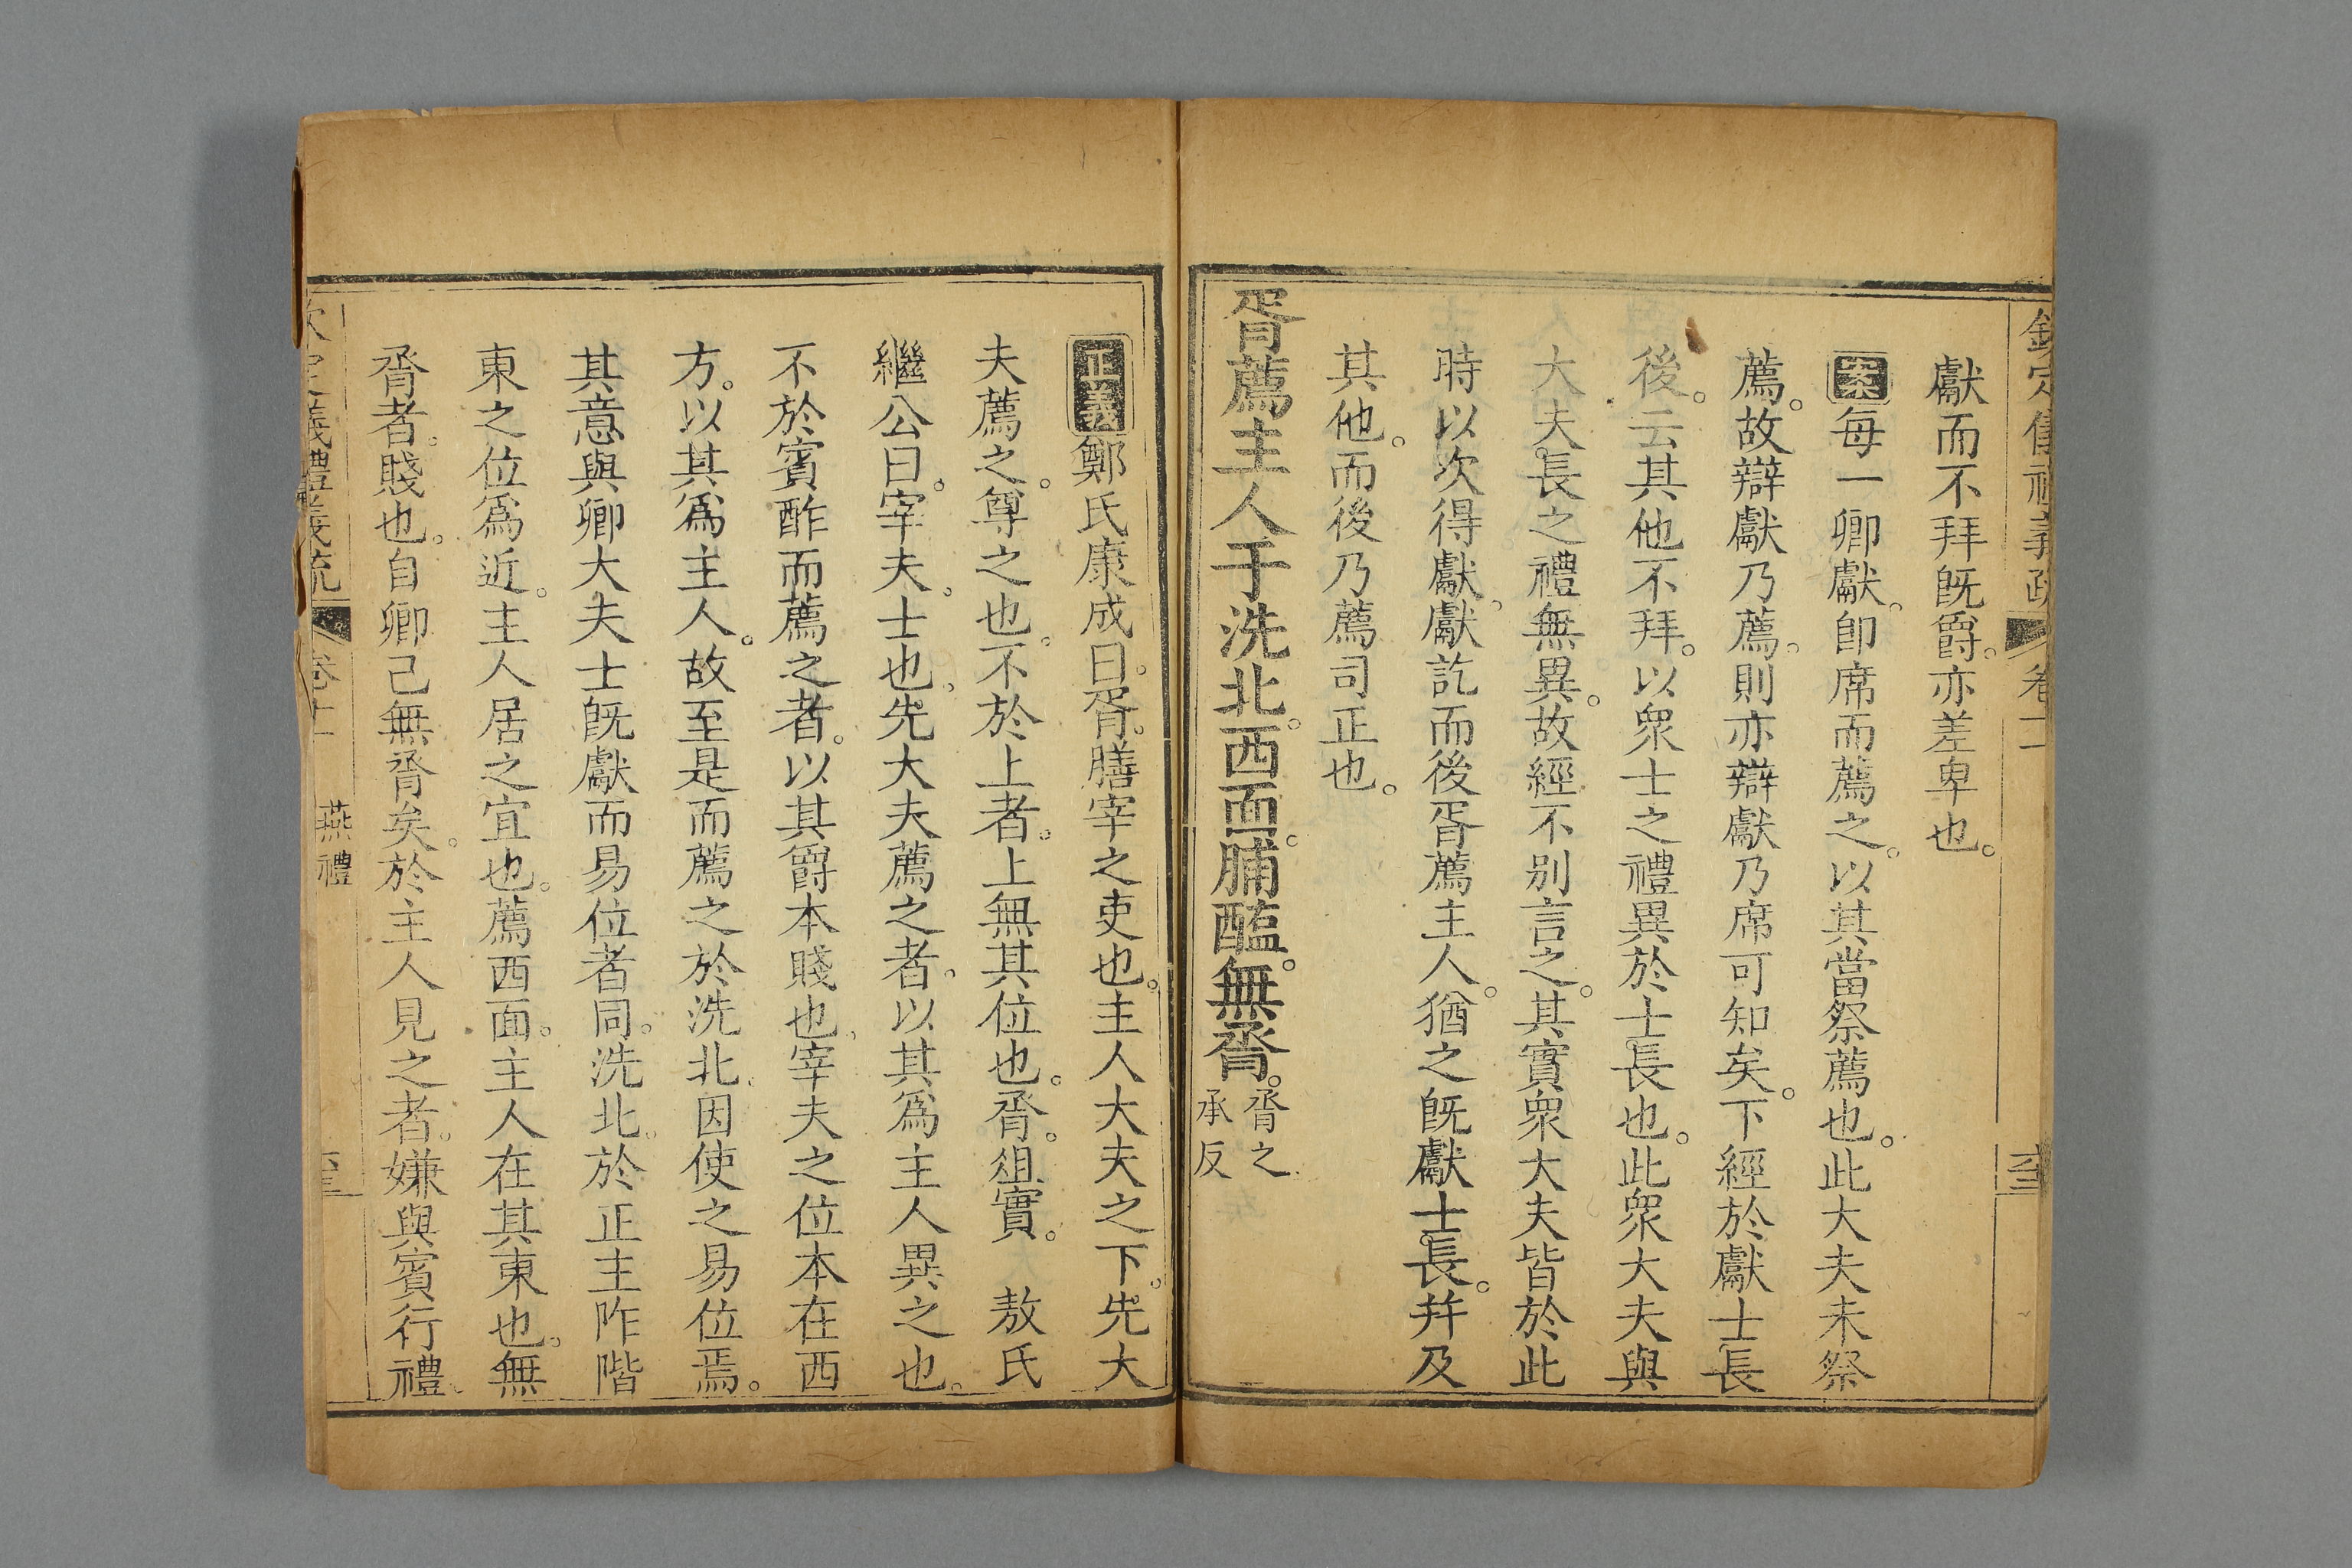 欽定儀禮義疏 卷十一
獻而不拜旣爵。亦差卑也。
案每一卿獻。卽席而薦之。以其當祭薦也。此大夫未祭
薦。故辯獻乃薦。則亦辯獻乃席可知矣。下經於獻士長
後。云其他不拜。以衆士之禮異於士長也。此衆大夫與
大夫長之禮無異。故經不别言之。其實衆大夫皆於此
時以次得獻。獻訖而後胥薦主人。猶之旣獻士長。幷及
其他。而後乃薦司正也。
胥薦主人于洗北。西面。脯醢。無脀。脀之
承反
正義鄭氏康成曰。胥。膳宰之吏也。主人大夫之下。先大
夫薦之。尊之也。不於上者。上無其位也。脀。俎實。 敖氏
繼公曰。宰夫。士也。先大夫薦之者。以其爲主人異之也。
不於賓酢而薦之者。以其爵本賤也。宰夫之位本在西
方。以其爲主人。故至是而薦之於洗北。因使之易位焉。
其意與卿大夫士旣獻而易位者同。洗北。於正主阼階
東之位爲近。主人居之宜也。薦西面。主人在其東也。無
脀者。賤也。自卿己無脀矣。於主人見之者。嫌與賓行禮。
欽定儀禮義疏 卷十一 燕禮